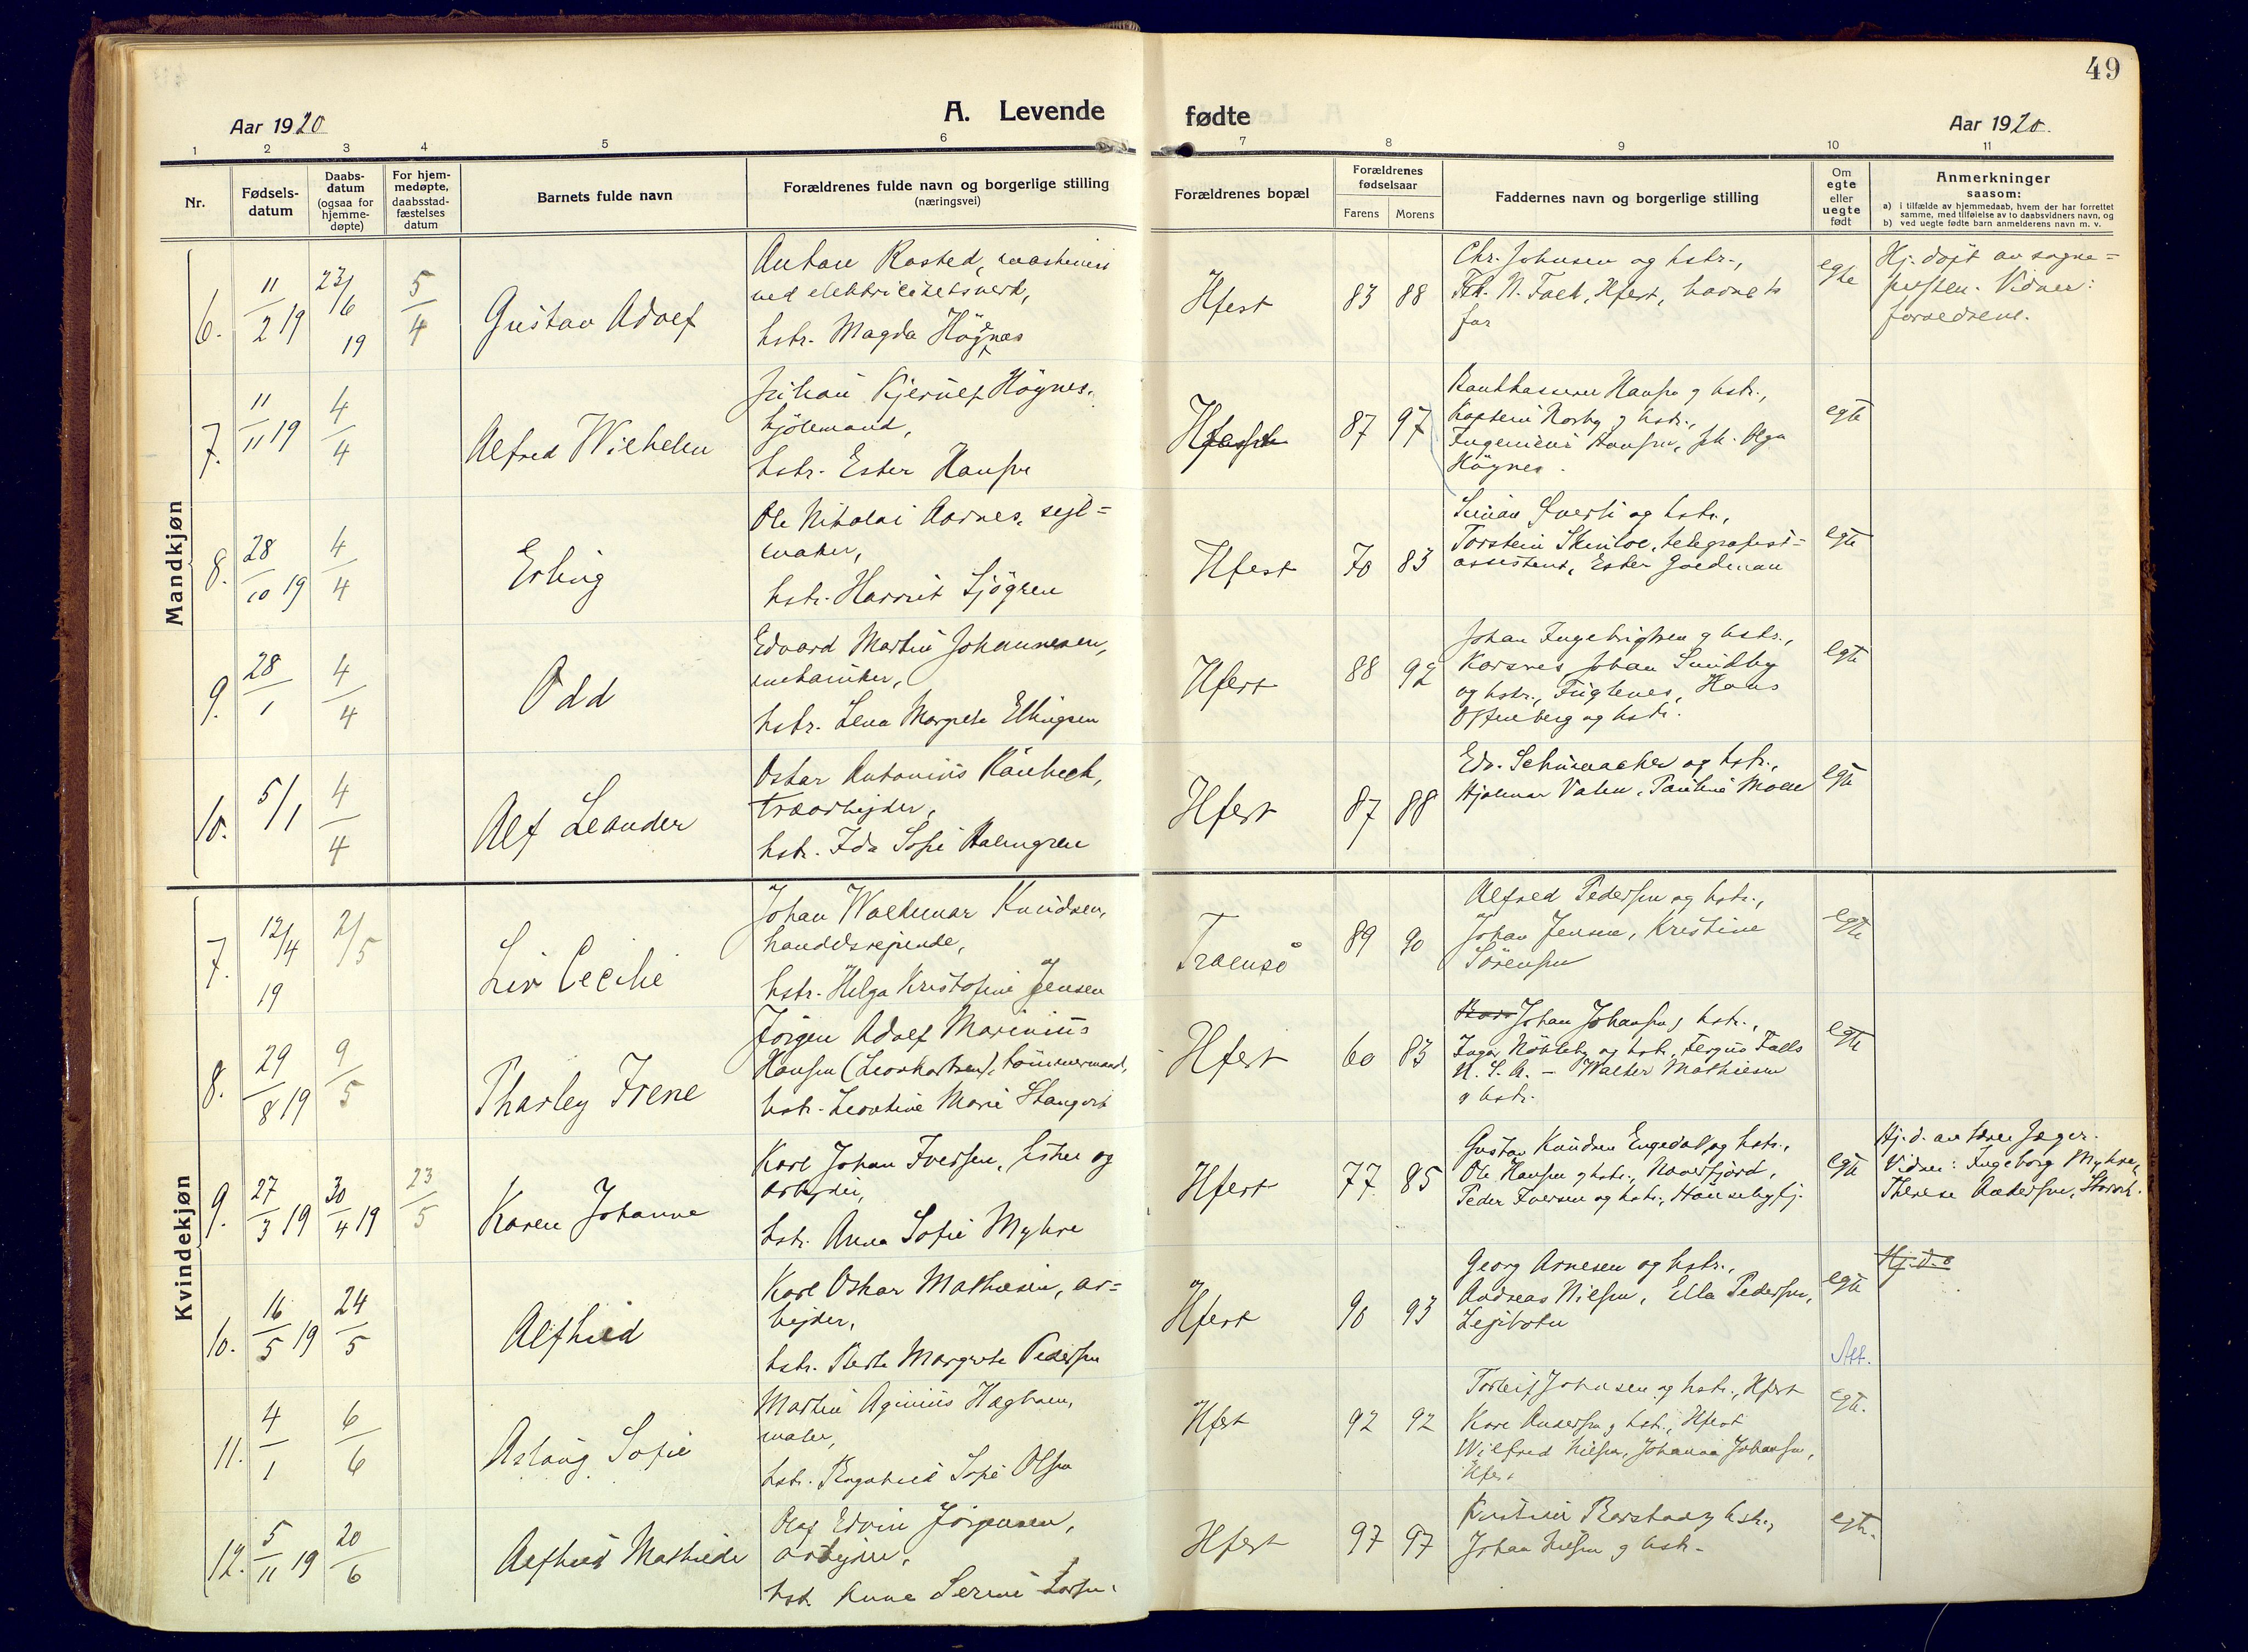 49
A. Levende fødte
Aar 1920
Aar 1920.
1 2 3 4 5 6 7 8 9 10 11
Nr.
Fødsels-
datum
Daabs-
datum
(ogsaa for
hjemme-
døpte)
For hjem-
medøpte,
daabsstad-
fæstelses
datum
Barnets fulde navn
Forældrenes fulde navn og borgerlige stilling
(næringsvei)
Forældrenes bopæl
Forældrenes
fødselsaar
Farens Morens
Faddernes navn og borgerlige stilling
Om
egte
eller
uegte
født
Anmerkninger
saasom:
a) i tilfælde av hjemmedaab, hvem der har forrettet
samme, med tilføielse av to daabsvidners navn, og
b) ved uegte fødte barn anmelderens navn m. v.
Mandkjøn
6. 11/2 19 23/6 19 5/4 Gustav Adolf
Anton Rasted, maskinist
ved elektricitetsverk,
hstr. Magda Högnæs
Hfest 83 88
Chr. Johnsen og hstr.,
N. Foch, Hfest, barnets
far
egte
Hj. døpt av sogne=
presten. Vidner:
forældrene.
7. 11/11 19 4/4 Alfred Wilhelm
Johan Kjerulf Högnes,
hjölemand,
hstr. Ester Hansen
Hfest 87 97
Bankkasserer Hansen g hstr.,
Kaptein Norby g hstr.,
Ingeniör Hansen, frk. Olga
Högnes.
egte
8. 28/10 19 4/4 Erling
Ole Nikolai Aarnes, seil=
maker,
hstr. Harriet Sjögren
Hfest 70 83
Simon Sverli og hstr.,
Torstein Skinloe, telegrafist=
assistent, Ester Goodman
egte
9. 28/1 4/4 Odd
Edvard Martin Johannesen,
mekaniker,
hstr. Lena Margrete Ellingsen
Hfest 88 92
Johan Ingebrigtsen g hstr.,
Korsnes, Johan Sundby
og hstr., Fuglenes, Hans
og hstr.
egte
10. 5/1 4/4 Alf Leander
Oskar Antonius Rönbeck,
træarbejder,
hstr. Ida Sofie Malmgren
Hfest 87 88
Edv. Schumacher og hstr.,
Hjalmar Valen, Pauline Moen
egte
Kvindekjøn
7. 12/4 19 2/5 Liv Cecilie
Johan Waldemar Knudsen,
handelsrejsende,
hstr. Helga Kristofine Jensen
Tromsö 89 90
Alfred Pedersen og hstr.,
Johan Jensen, Kristine
Sörensen
egte
8. 29/8 19 9/5 Tharley Irene
Jörgen Adolf Marinius
Hansen (Leonhartsen), tömmermand,
hstr. Leontine Marie Stangvik
Hfest 60 83
Johan Johansen g hstr.,
Inger Nökleby og hstr., Fergus Falls
U. S. A. – Walter Mathiesen
g hstr.
egte
9. 27/3 19 30/4 19 23/5 Karen Johanne
Karl Johan Iversen, fisker og
arbejder,
hstr. Anna Sofie Myhre
Hfest 77 85
Gustav Knudsen Engedal og hstr.,
Ole Hansen g hstr., Kaarfjord,
Peder Iversen og hstr., Hönsebyfj.
egte
Hj. d. av lærer Jæger.
Vidner: Ingeborg Myhre,
Therese Andersen,
10. 16/5 19 24/5 Alfhild
Karl Oskar Mathisen, ar=
bejder,
hstr. Berte Margrete Pedersen
Hfest 90 93
Georg Arnesen og hstr.,
Andreas Nilsen, Ella Pedersen,
egte
Hj. d.
Att.
11. 4/1 6/6 Aslaug Sofie
Martin Aginius Hagbraen,
maler,
hstr. Ragnhild Sofie Olsen
Hfest 92 92
Torleif Johansen og hstr., Hfest
Kare Andersen g hstr., Hfest
Wilfred Nilsen, Johanna Johansen,
Hfest
egte.
12. 5/11 19 20/6 Alfhild Mathilde
Olaf Edvin Jörgensen,
arbejder,
hst. Anna Serine Larsen.
Hfest 97 97
Kristian Barstad g hstr.,
Johan Nilsen g hstr.
egte.